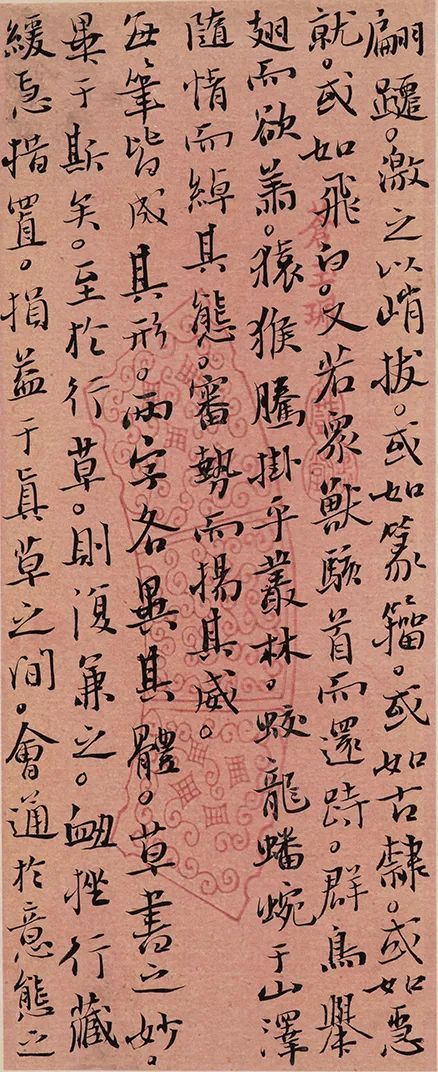 翩躚。激之以峭拔。或如篆籀。或如古隸。或如急
就。或如飛白。又若眾獸駭首而還跱。群鳥舉
翅而欲翥。猿猴騰掛乎叢林。蛟龍蟠蜿于山澤
隨情而綽其態。審勢而揚其威。
每筆皆成其形。兩字各異其體。草書之妙。
畢于斯矣。至於行草。則復兼之。衄挫行藏
緩急措置。損益于眞草之間。會通於意態之